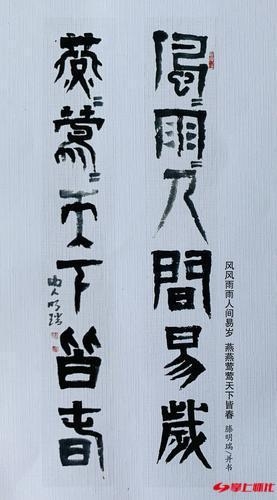 風〻雨〻人間易歲
燕〻鶯〻天下皆春
明瑞
风风雨雨人间易岁 燕燕莺莺天下皆春 滕明瑞/并书
掌上怀化